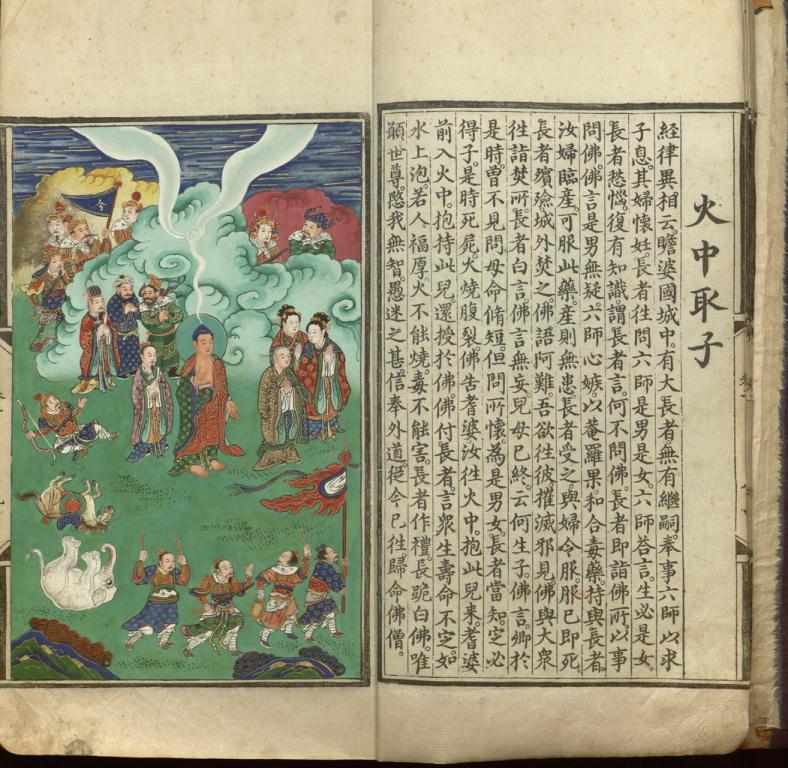 火中取子
經律異相云。瞻婆國城中。有大長者無有繼嗣。奉事六師以求
子息。其婦懷妊。長者往問六師是男是女。六師荅言。生必是女。
長者愁惱。復有知識謂長者言。何不問佛。長者即詣佛所。以事
問佛。佛言是男無疑。六師心嫉。以菴羅果。和合毒藥。持與長者。
汝婦臨産。可服此藥。産則無患。長者受之。與婦令服。服已即死。
長者殯殮城外焚之。佛語阿難。吾欲往彼摧滅邪見。佛與大衆
徃詣焚所。長者白言。佛言無妄。兒母已終。云何生子。佛言。卿於
是時。曾不見問母命脩短。但問所懷。為是男女。長者當知。定必
得子。是時死屍。火燒腹裂。佛告耆婆。汝徃火中。抱此兒來。耆婆
前入火中。抱持此兒。還授於佛。佛付長者。言衆生壽命不定。如
水上泡。若人福厚。火不能燒。毒不能害。長者作禮。長跪白佛。唯
願世尊。愍我無智。愚迷之甚。信奉外道。從今已徃。歸命佛僧。
令